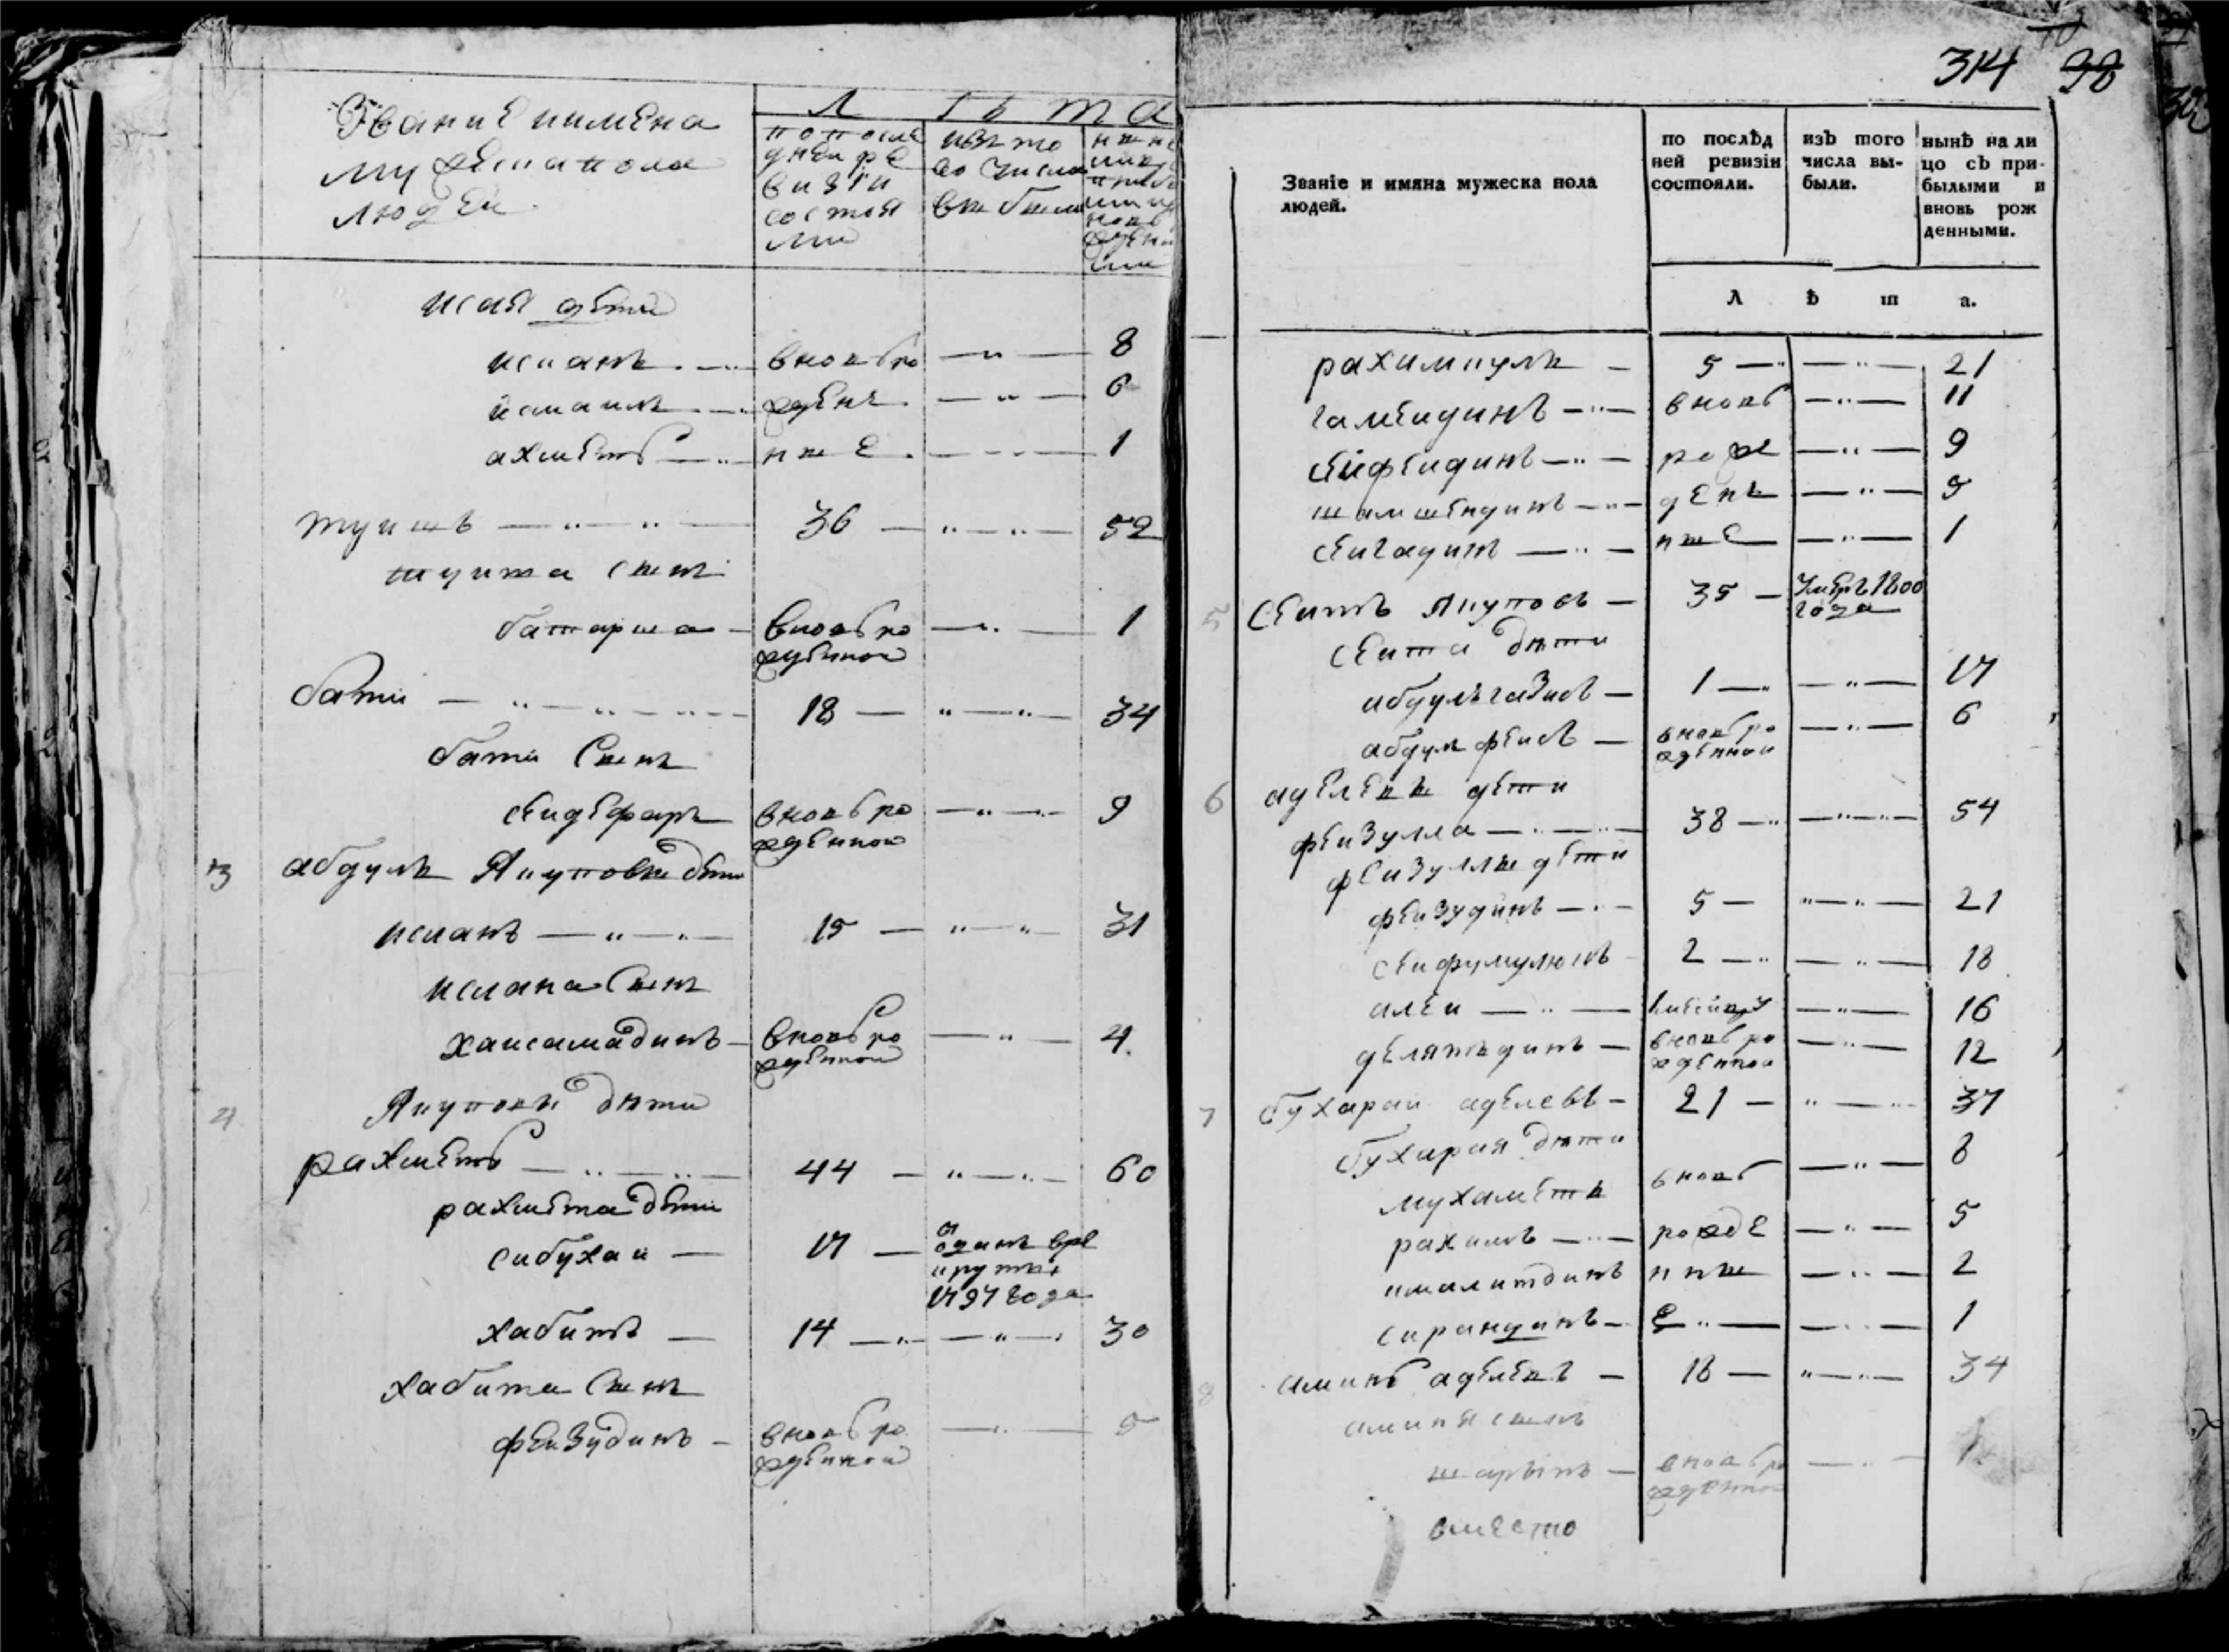 Звание иимена
мужеска пола
людей
Л ѣ т а
по после
дней ре
визiи
состоя
ли
изъ то
го числа
выбыли
исая дети
исланъ вновь ро 8
исмаилъ жденъ 6
ахметъ ные 1
туишъ 36 52
туиша сынъ
батарша вновь ро
жденной 1
бати 18 34
бати сынъ
сеидефаръ вновь ро
жденной 9
3 абдулъ Якуповы дети
исланъ 15 31
ислана сынъ
хаисамадинъ вновь ро
жденной 4
4 Якуповы дети
рахметъ 44 60
рахмета дети
сибухаи 17 отданъ вре
круты
1797 года
хабитъ 14 30
хабита сынъ
феизудинъ вновь ро
жденной 5
314 38
Званiе и имяна мужеска пола
людей.
по послѣд
ней ревизiи
состояли.
изъ того
числа вы-
были.
нынѣ на ли
цо съ при-
былыми и
вновь рож
денными.
Л ѣ т а.
рахимкулъ 5 21
гамеидинъ вновь 11
сеифеидинъ рож 9
шамшеидинъ денъ 5
сеигадинъ ные 1
5 сеитъ Якуповъ 35 умеръ 1800
года
сеита дѣти
абдулъгазисъ 1 17
абдулфеисъ вновь ро
жденнои 6
6 аделевы дети
феизулла 38 54
феизуллы дети
феизудинъ 5 21
сеифумулюкъ 2 18
алеи 16
делятьдинъ вновь ро
жденнои 12
7 бухараи аделевъ 21 37
бухарая дѣти
мухаметь вновь 8
рахимъ рожде 5
ималитдинъ нны 2
сирандинъ е 1
8 аминь аделевъ 18 34
аминя сынъ
шарыпъ вновь ро
жденнои 1
вместо